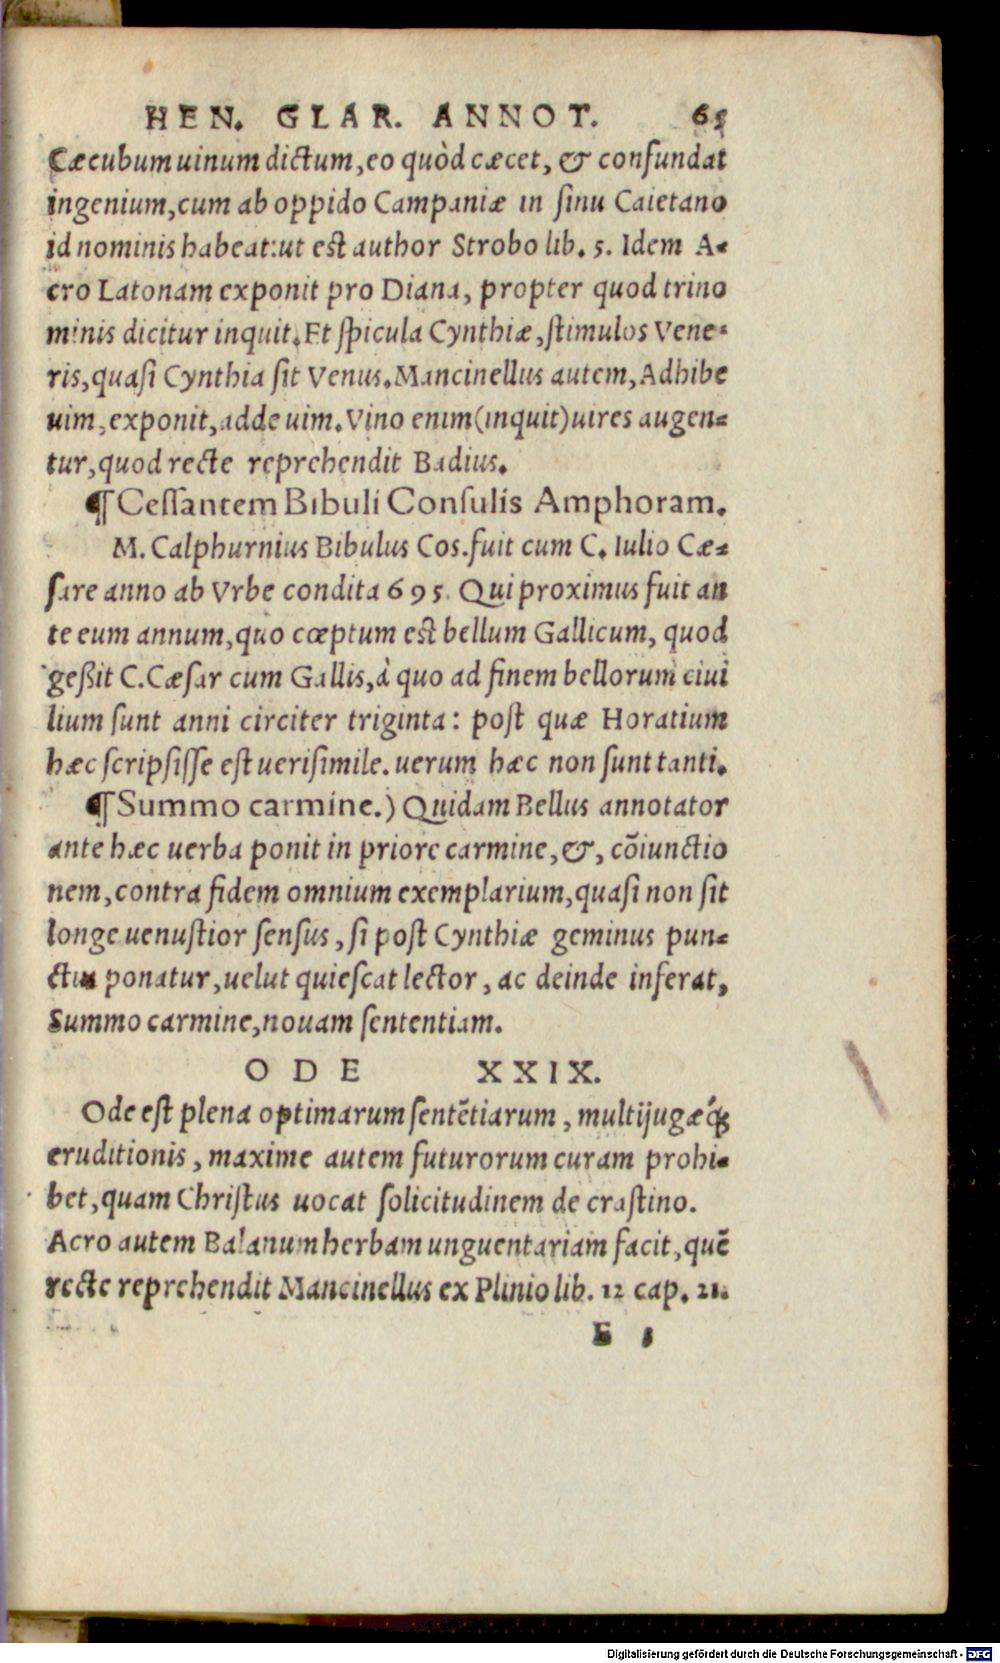 HEN. GLAR. ANNOT. 65
Cæcubum uinum dictum, eo quòd cæcet, & confundat
ingenium, cum ab oppido Campaniæ in sinu Caietano
id nominis habeat: ut est author Strobo lib. 5. Idem A-
cro Latonam exponit pro Diana, propter quod trino
minis dicitur inquit. Et spicula Cynthiæ, stimulos Vene-
ris, quasi Cynthia sit Venus. Mancinellus autem, Adhibe
uim, exponit, adde uim. Vino enim (inquit) uires augen-
tur, quod recte reprehendit Badius.
¶ Cessantem Bibuli Consulis Amphoram.
M. Calphurnius Bibulus Cos. fuit cum C. Iulio Cæ-
sare anno ab Vrbe condita 695. Qui proximus fuit an
te eum annum, quo cœptum est bellum Gallicum, quod
geßit C. Cæsar cum Gallis, à quo ad finem bellorum ciui
lium sunt anni circiter triginta: post quæ Horatium
hæc scripsisse est uerisimile. uerum hæc non sunt tanti.
¶ Summo carmine.) Quidam Bellus annotator
ante hæc uerba ponit in priore carmine, &, cõiunctio
nem, contra fidem omnium exemplarium, quasi non sit
longe uenustior sensus, si post Cynthiæ geminus pun-
ctus ponatur, uelut quiescat lector, ac deinde inferat,
Summo carmine, nouam sententiam.
ODE XXIX.
Ode est plena optimarum sentẽtiarum, multijugæq́;
eruditionis, maxime autem futurorum curam prohi-
bet, quam Christus uocat solicitudinem de crastino.
Acro autem Balanum herbam unguentariam facit, quẽ
recte reprehendit Mancinellus ex Plinio lib. 12 cap. 21.
E 5
Digitalisierung gefördert durch die Deutsche Forschungsgemeinschaft - DFG